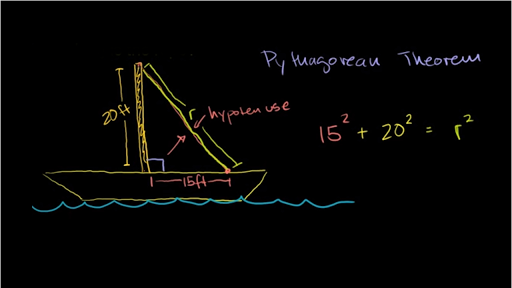 Pythagorean Theorem
20ft
r
hypotenuse
15² + 20² = r²
15ft